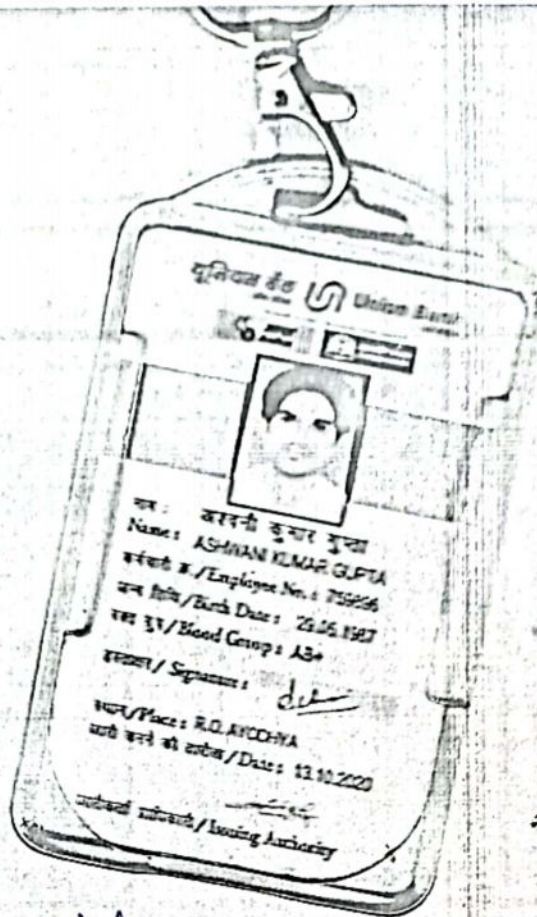 यूनियन बैंक Union Bank
नाम : अश्वनी कुमार गुप्ता
Name : ASHWANI KUMAR GUPTA
कर्मचारी क्र./Employee No. :
जन्म तिथि/Birth Date : 29.05.1987
रक्त ग्रुप/Blood Group : AB+
हस्ताक्षर/ Signature :
स्थान/Place : R.O. AYODHYA
जारी करने की तारीख/Date : 13.10.2020
/ Issuing Authority